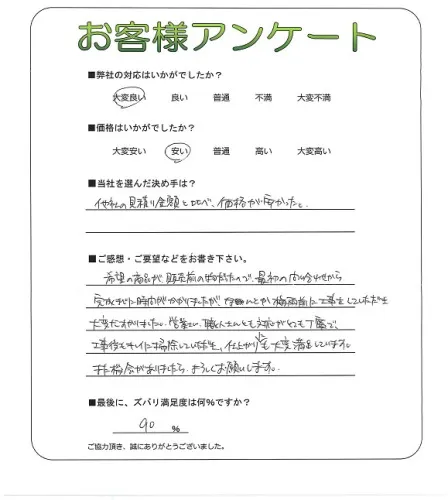 お客様アンケート
■弊社の対応はいかがでしたか？
大変良い 良い 普通 不満 大変不満
■価格はいかがでしたか？
大変安い 安い 普通 高い 大変高い
■当社を選んだ決め手は？
他社の見積り金額と比べ、価格が安かった。
■ご感想・ご要望などをお書き下さい。
希望の商品が、販売前の商品だったので、最初の問い合わせから
完成までに時間がかかりましたが、なんとか梅雨前に工事をしていただき
大変たすかりました。営業さん、職人さんとも対応がとても丁寧で、
工事後もきれいに掃除していただき、仕上がりにも大変満足しています。
また機会がありましたら、よろしくお願いします。
■最後に、ズバリ満足度は何％ですか？
90 ％
ご協力頂き、誠にありがとうございました。